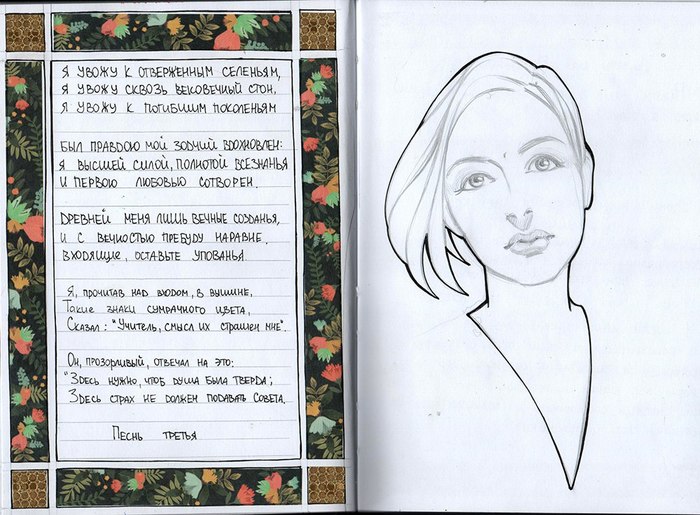 Я УВОЖУ К ОТВЕРЖЕННЫМ СЕЛЕНЬЯМ,
Я УВОЖУ СКВОЗЬ ВЕКОВЕЧНЫЙ СТОН,
Я УВОЖУ К ПОГИБШИМ ПОКОЛЕНЬЯМ
БЫЛ ПРАВДОЮ МОЙ ЗОДЧИЙ ВДОХНОВЛЕН:
Я ВЫСШЕЙ СИЛОЙ, ПОЛНОТОЙ ВСЕЗНАНЬЯ
И ПЕРВОЮ ЛЮБОВЬЮ СОТВОРЕН.
ДРЕВНЕЙ МЕНЯ ЛИШЬ ВЕЧНЫЕ СОЗДАНЬЯ,
И С ВЕЧНОСТЬЮ ПРЕБУДУ НАРАВНЕ.
ВХОДЯЩИЕ, ОСТАВЬТЕ УПОВАНЬЯ.
Я, ПРОЧИТАВ НАД ВХОДОМ, В ВЫШИНЕ,
ТАКИЕ ЗНАКИ СУМРАЧНОГО ЦВЕТА,
СКАЗАЛ: "УЧИТЕЛЬ, СМЫСЛ ИХ СТРАШЕН МНЕ".
ОН, ПРОЗОРЛИВЫЙ, ОТВЕЧАЛ НА ЭТО:
"ЗДЕСЬ НУЖНО, ЧТОБ ДУША БЫЛА ТВЕРДА;
ЗДЕСЬ СТРАХ НЕ ДОЛЖЕН ПОДАВАТЬ СОВЕТА.
ПЕСНЬ ТРЕТЬЯ